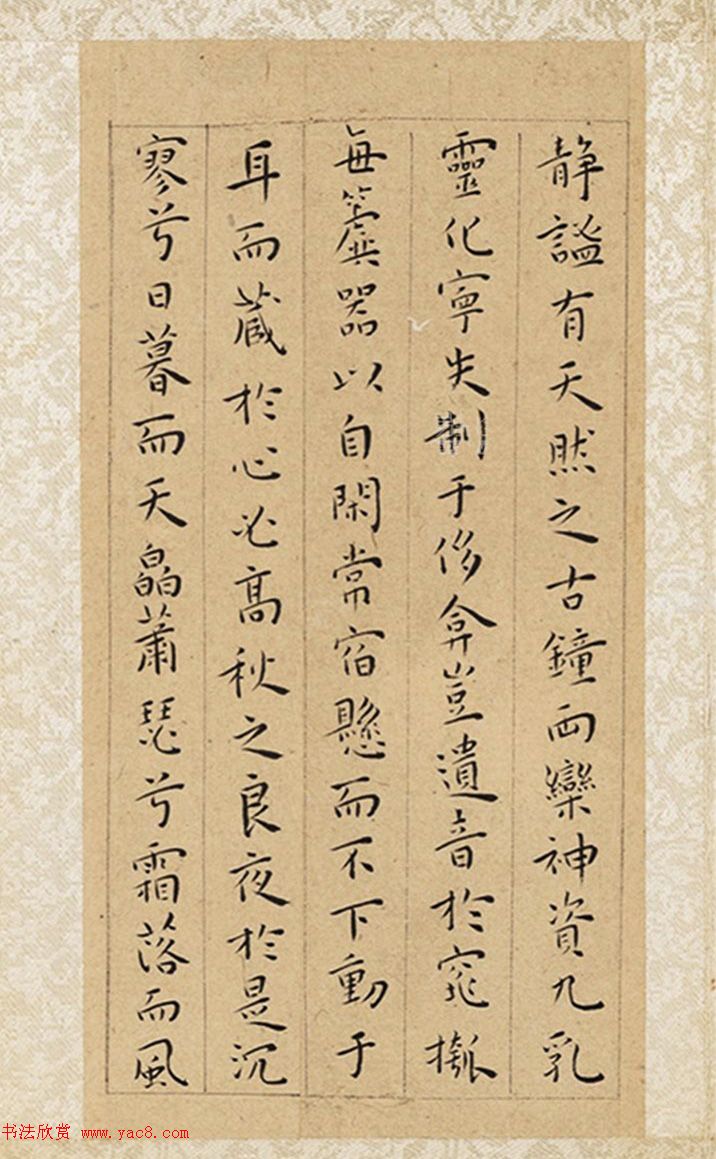 静謐有天然之古鐘兩欒神資九乳
靈化寧失制于侈弇豈遺音於窕槬
每簴器以自閑常宿懸而不下動于
耳而蔵於心必高秋之良夜於是沉
寥兮日暮而天皛蕭瑟兮霜落而風
书法欣赏 www.yac8.com